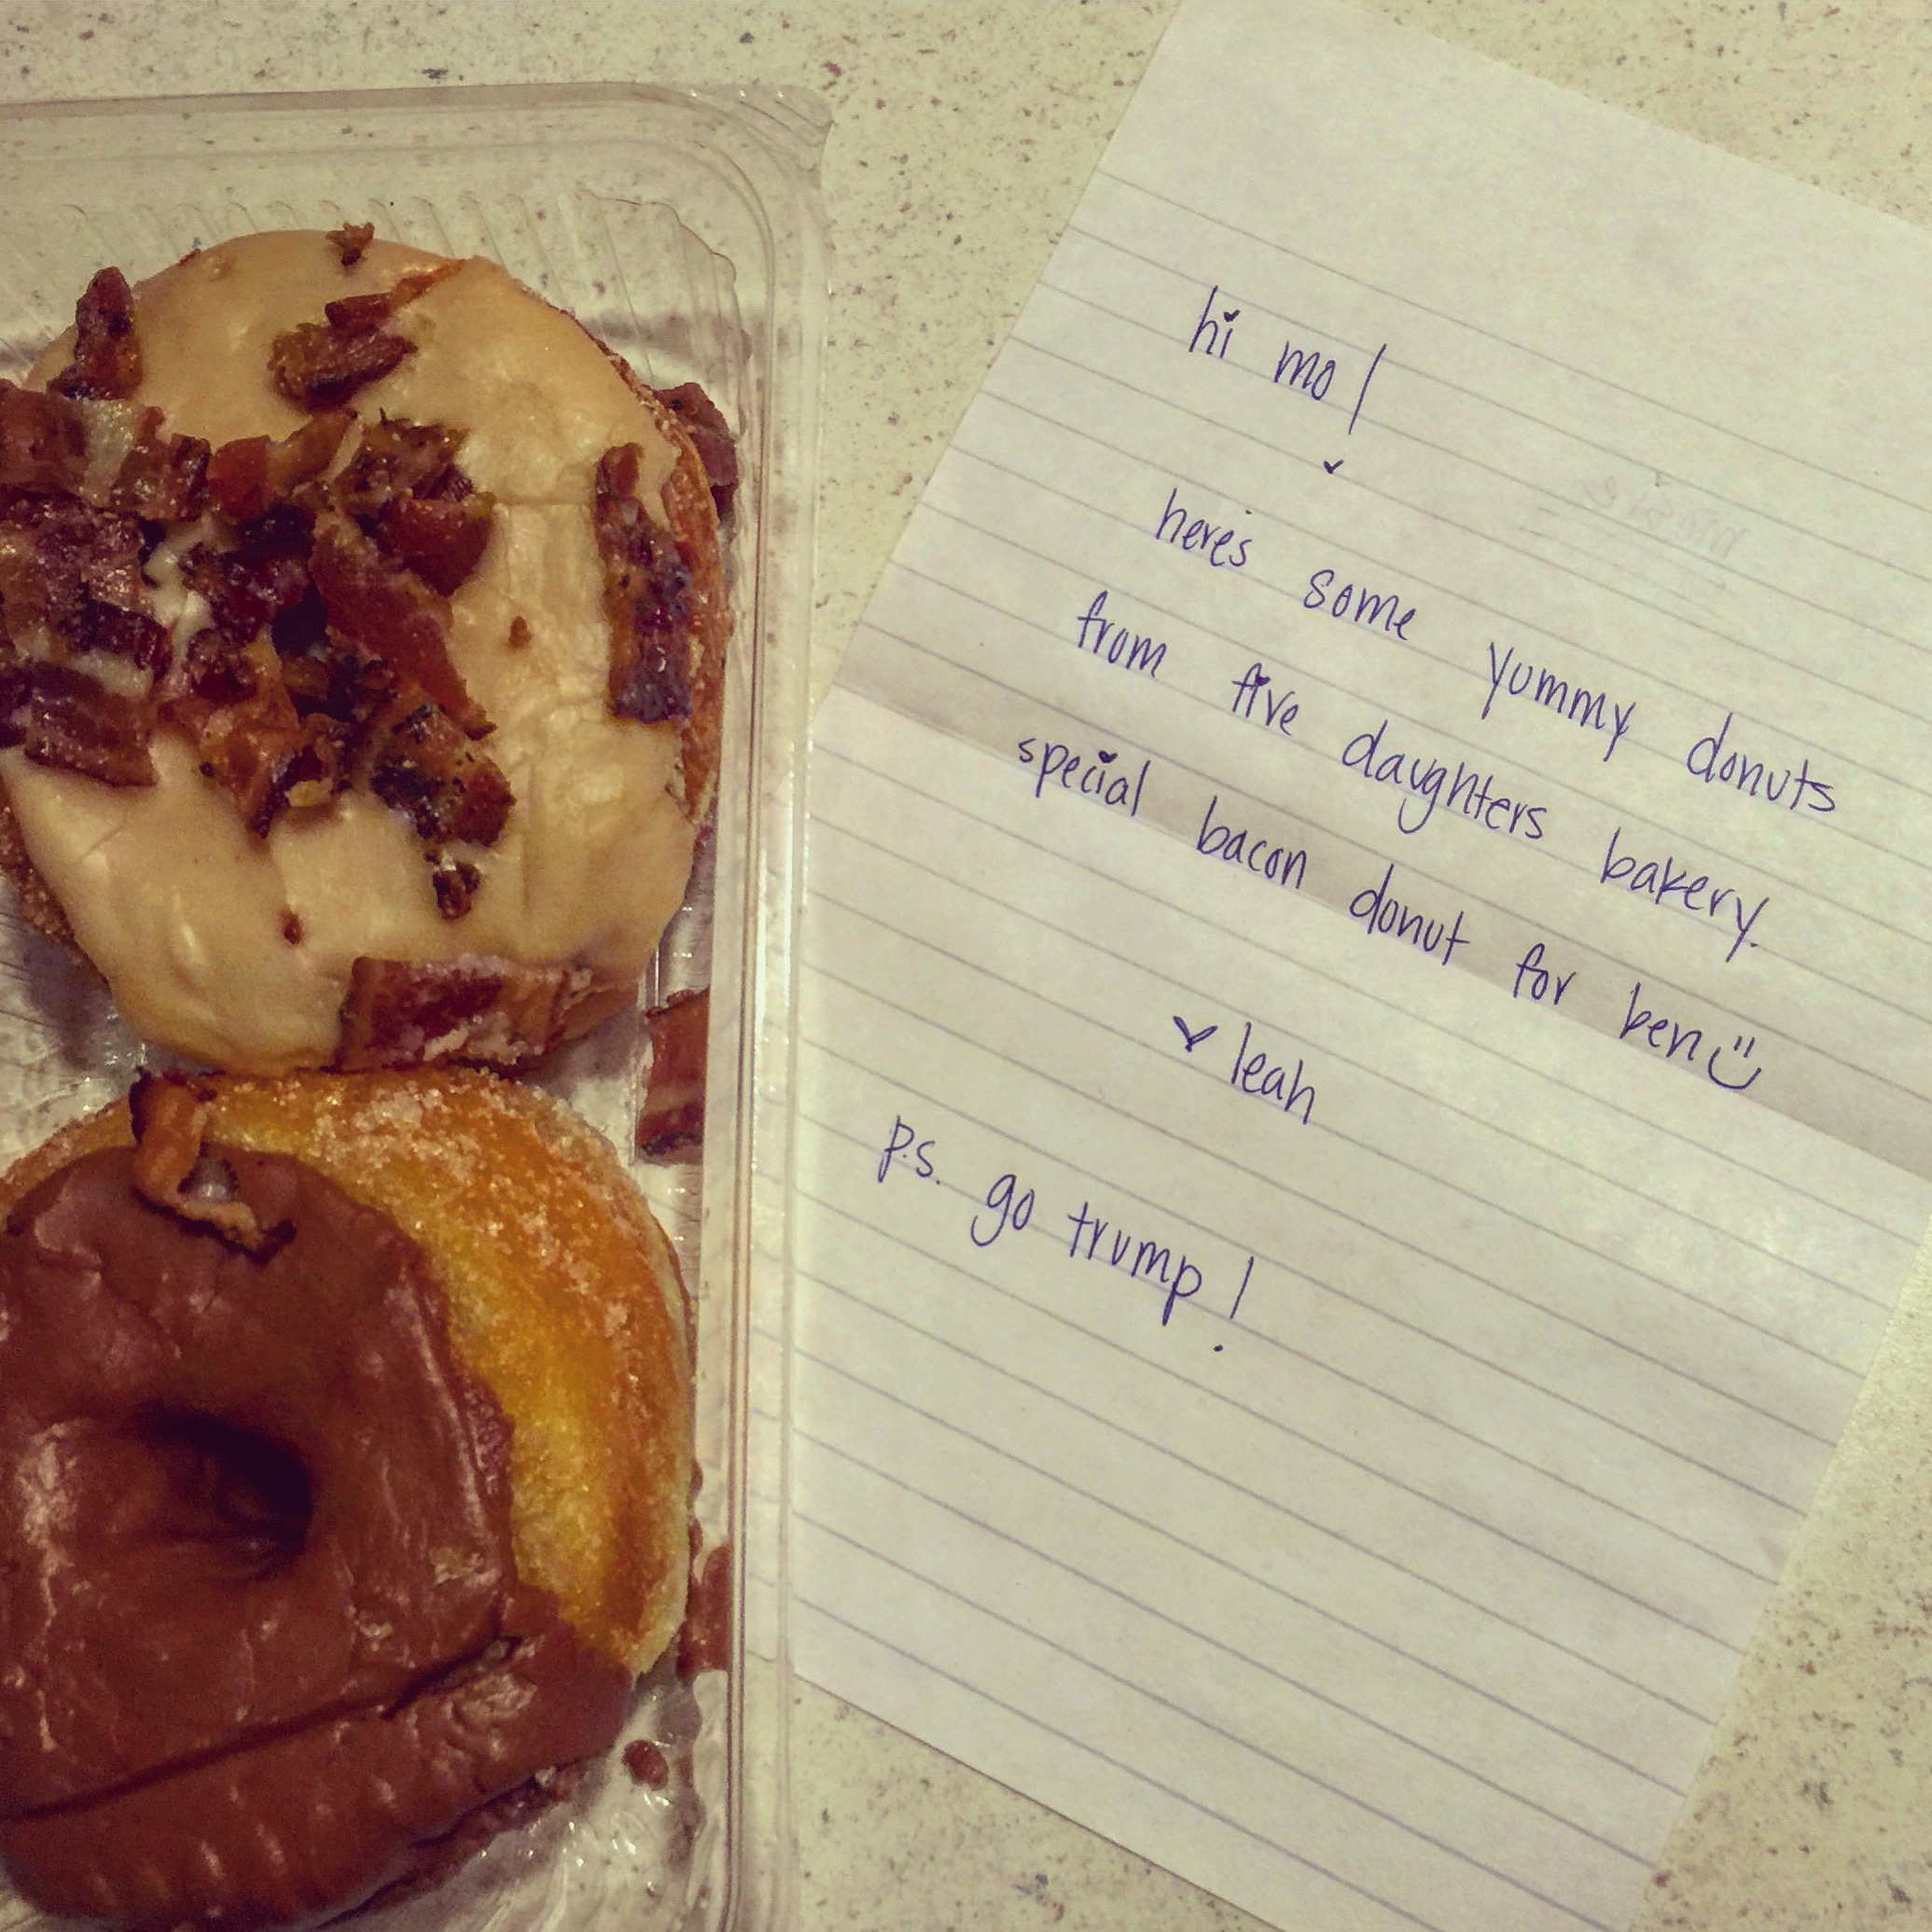 hi mo!
here's some yummy donuts
from five daughters bakery.
special bacon donut for ben
leah
p.s. go trump!